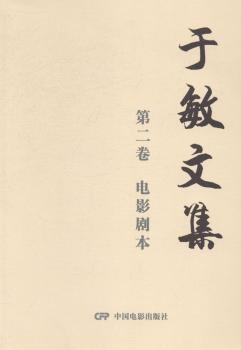 于敏文集
第二卷 电影剧本
CFP 中国电影出版社